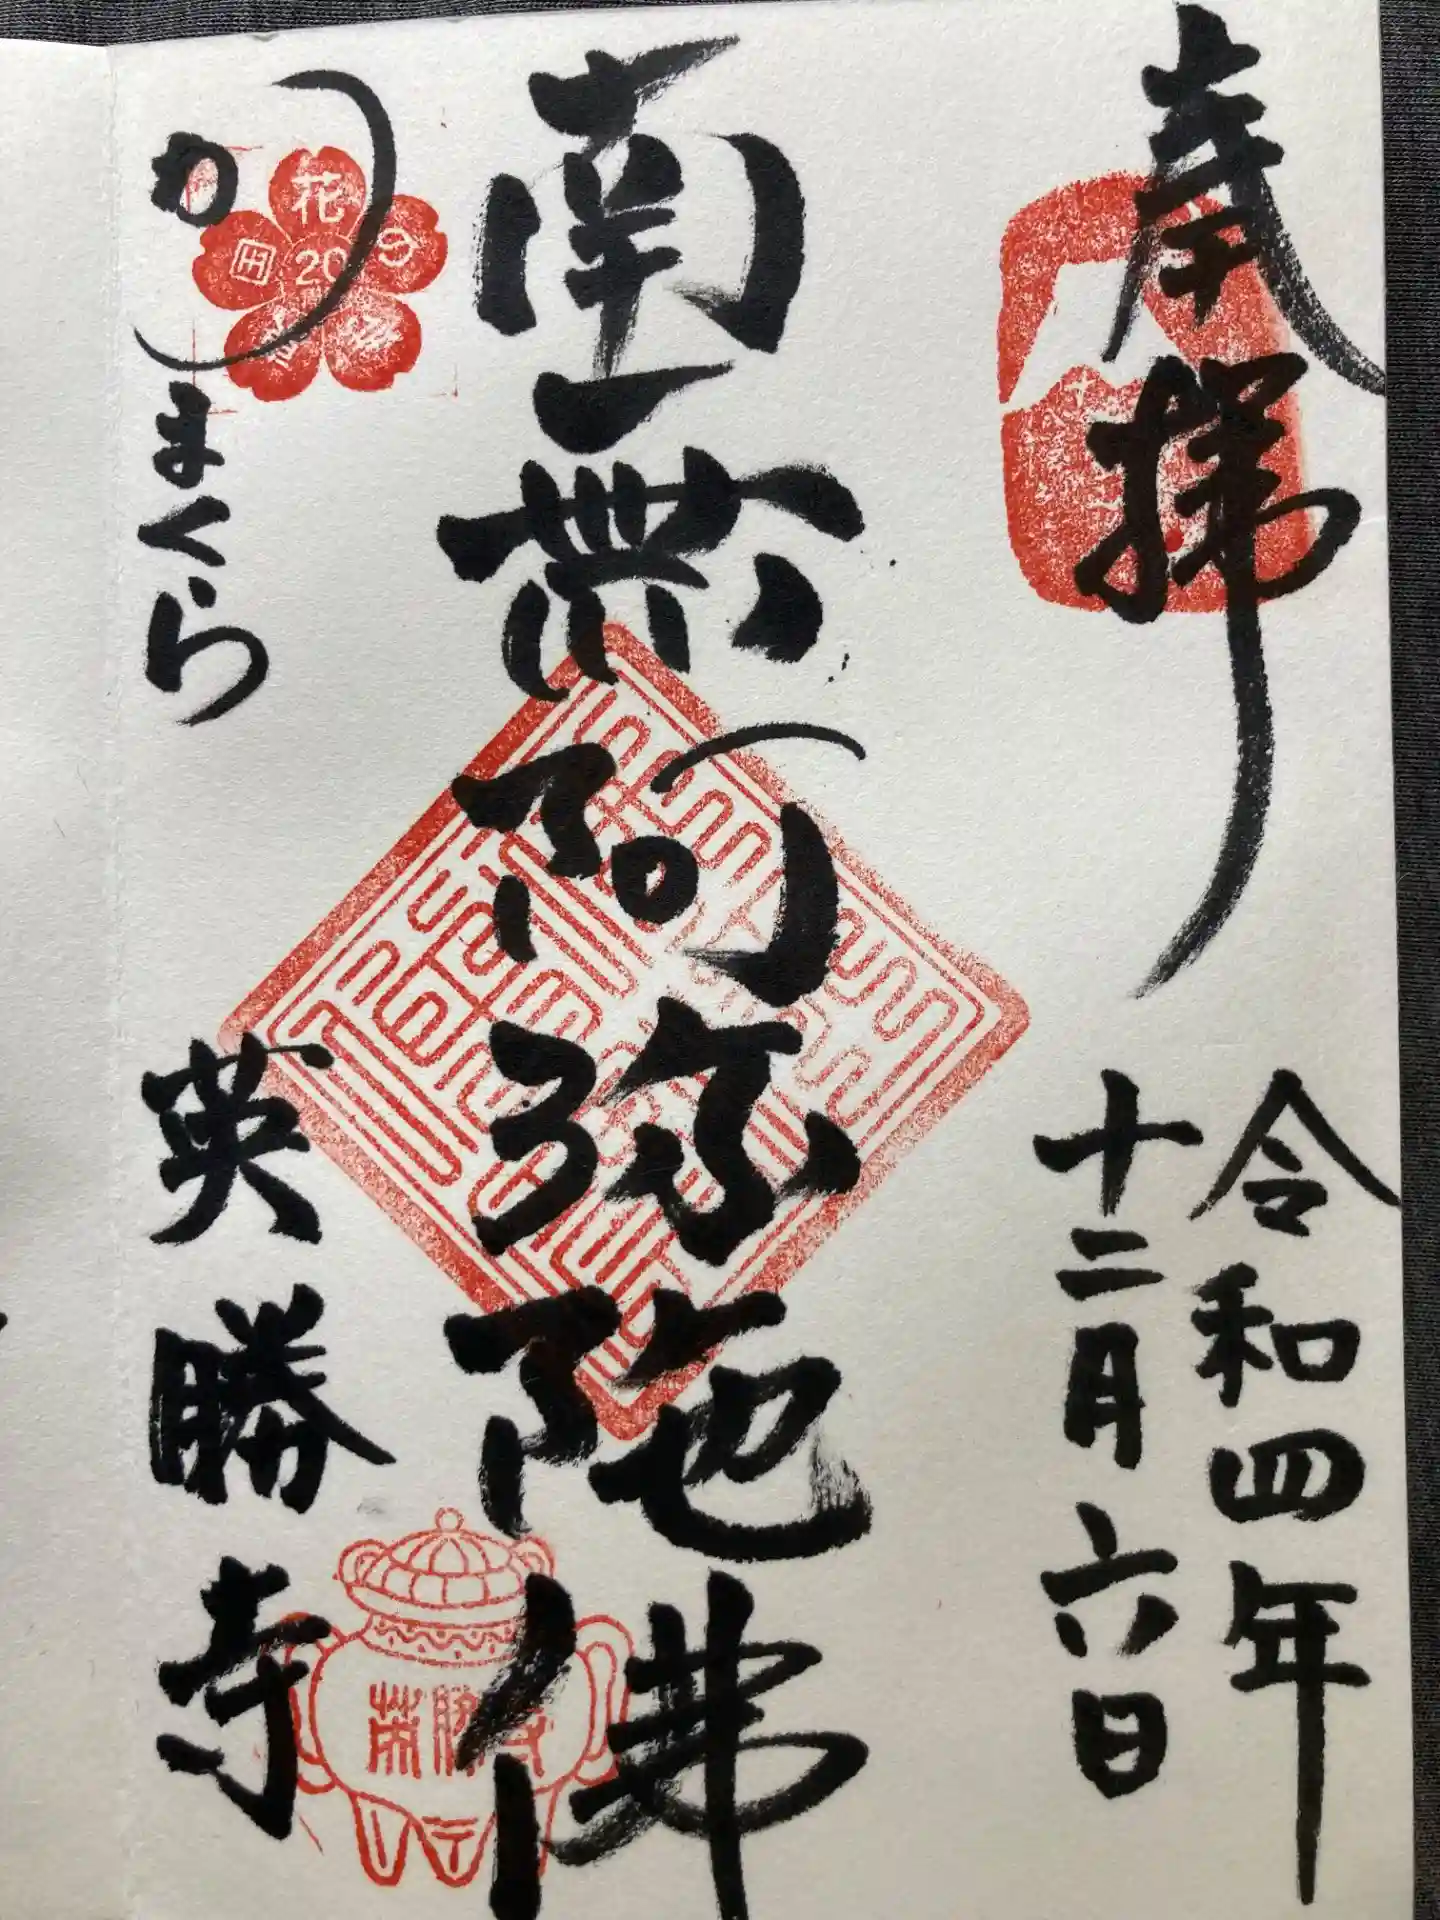 奉拝
令和四年
十二月六日
南無阿弥陀佛
かまくら
英勝寺
花
の
20
英勝寺